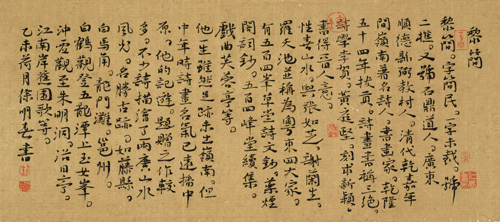 黎簡
黎簡。字簡民。一字未裁。號
二樵。又號石鼎道人。廣東
順德新弼教村人。清代乾嘉年
間嶺南著名詩人。書畫家。乾隆
五十四年拔貢。詩畫書稱三絕。
詩學李賀。黃庭堅。刻求新穎
畫得昔人意。
性喜山水。與張如芝、謝蘭生、
羅天池並稱為粵東四大家。
有五百四峰草堂詩文鈔。藥煙
閣詞鈔。五百四峰堂續集。
戲曲芙蓉亭等。
他生雖然足跡未出嶺南。但
中年時詩畫名氣已遠播中
原。他的記遊。題贈之作較
多。不少詩描繪了兩廣山水
風光。名勝古跡。如藤縣。
白馬廟。龍門灘。邕州。
白鶴觀登五龍潭上玉女峯。
沖虛觀至朱明洞。浴日亭。
江南岸舊園歌等。
乙未荷月 明 書